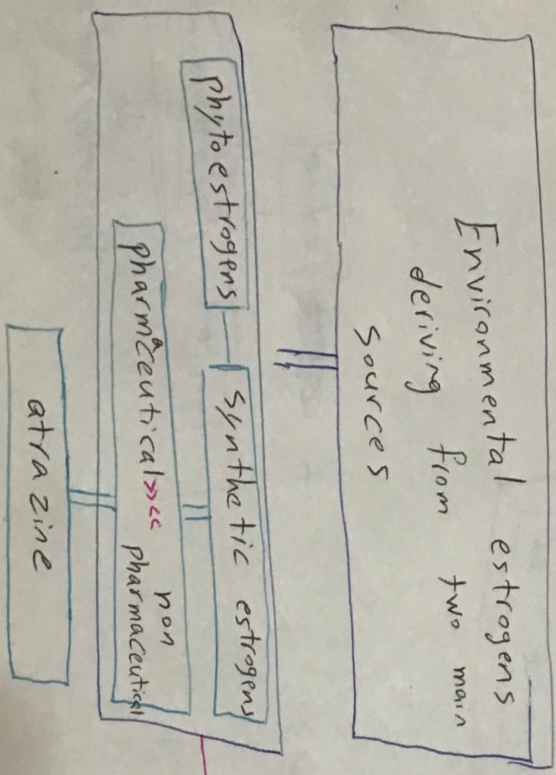 Environmental estrogens
deriving from two main
sources
phytoestrogens
synthetic estrogens
pharmaceutical >> << non
pharmaceutical
atrazine